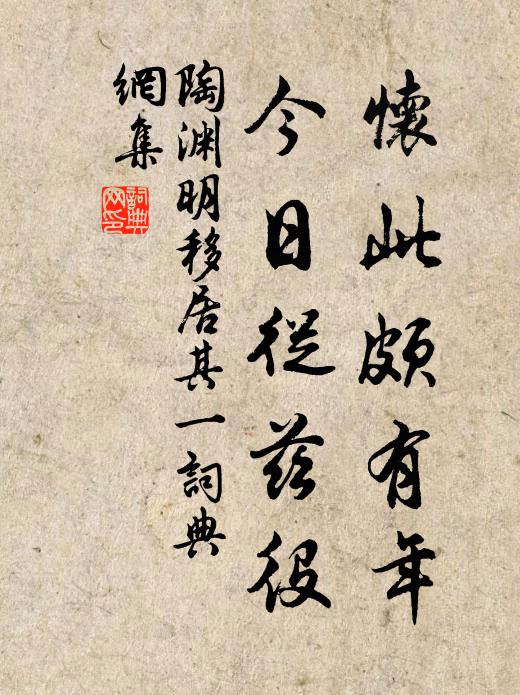 懷此頗有年
今日從茲役
陶渊明移居其一詞典
網集
詞典网印